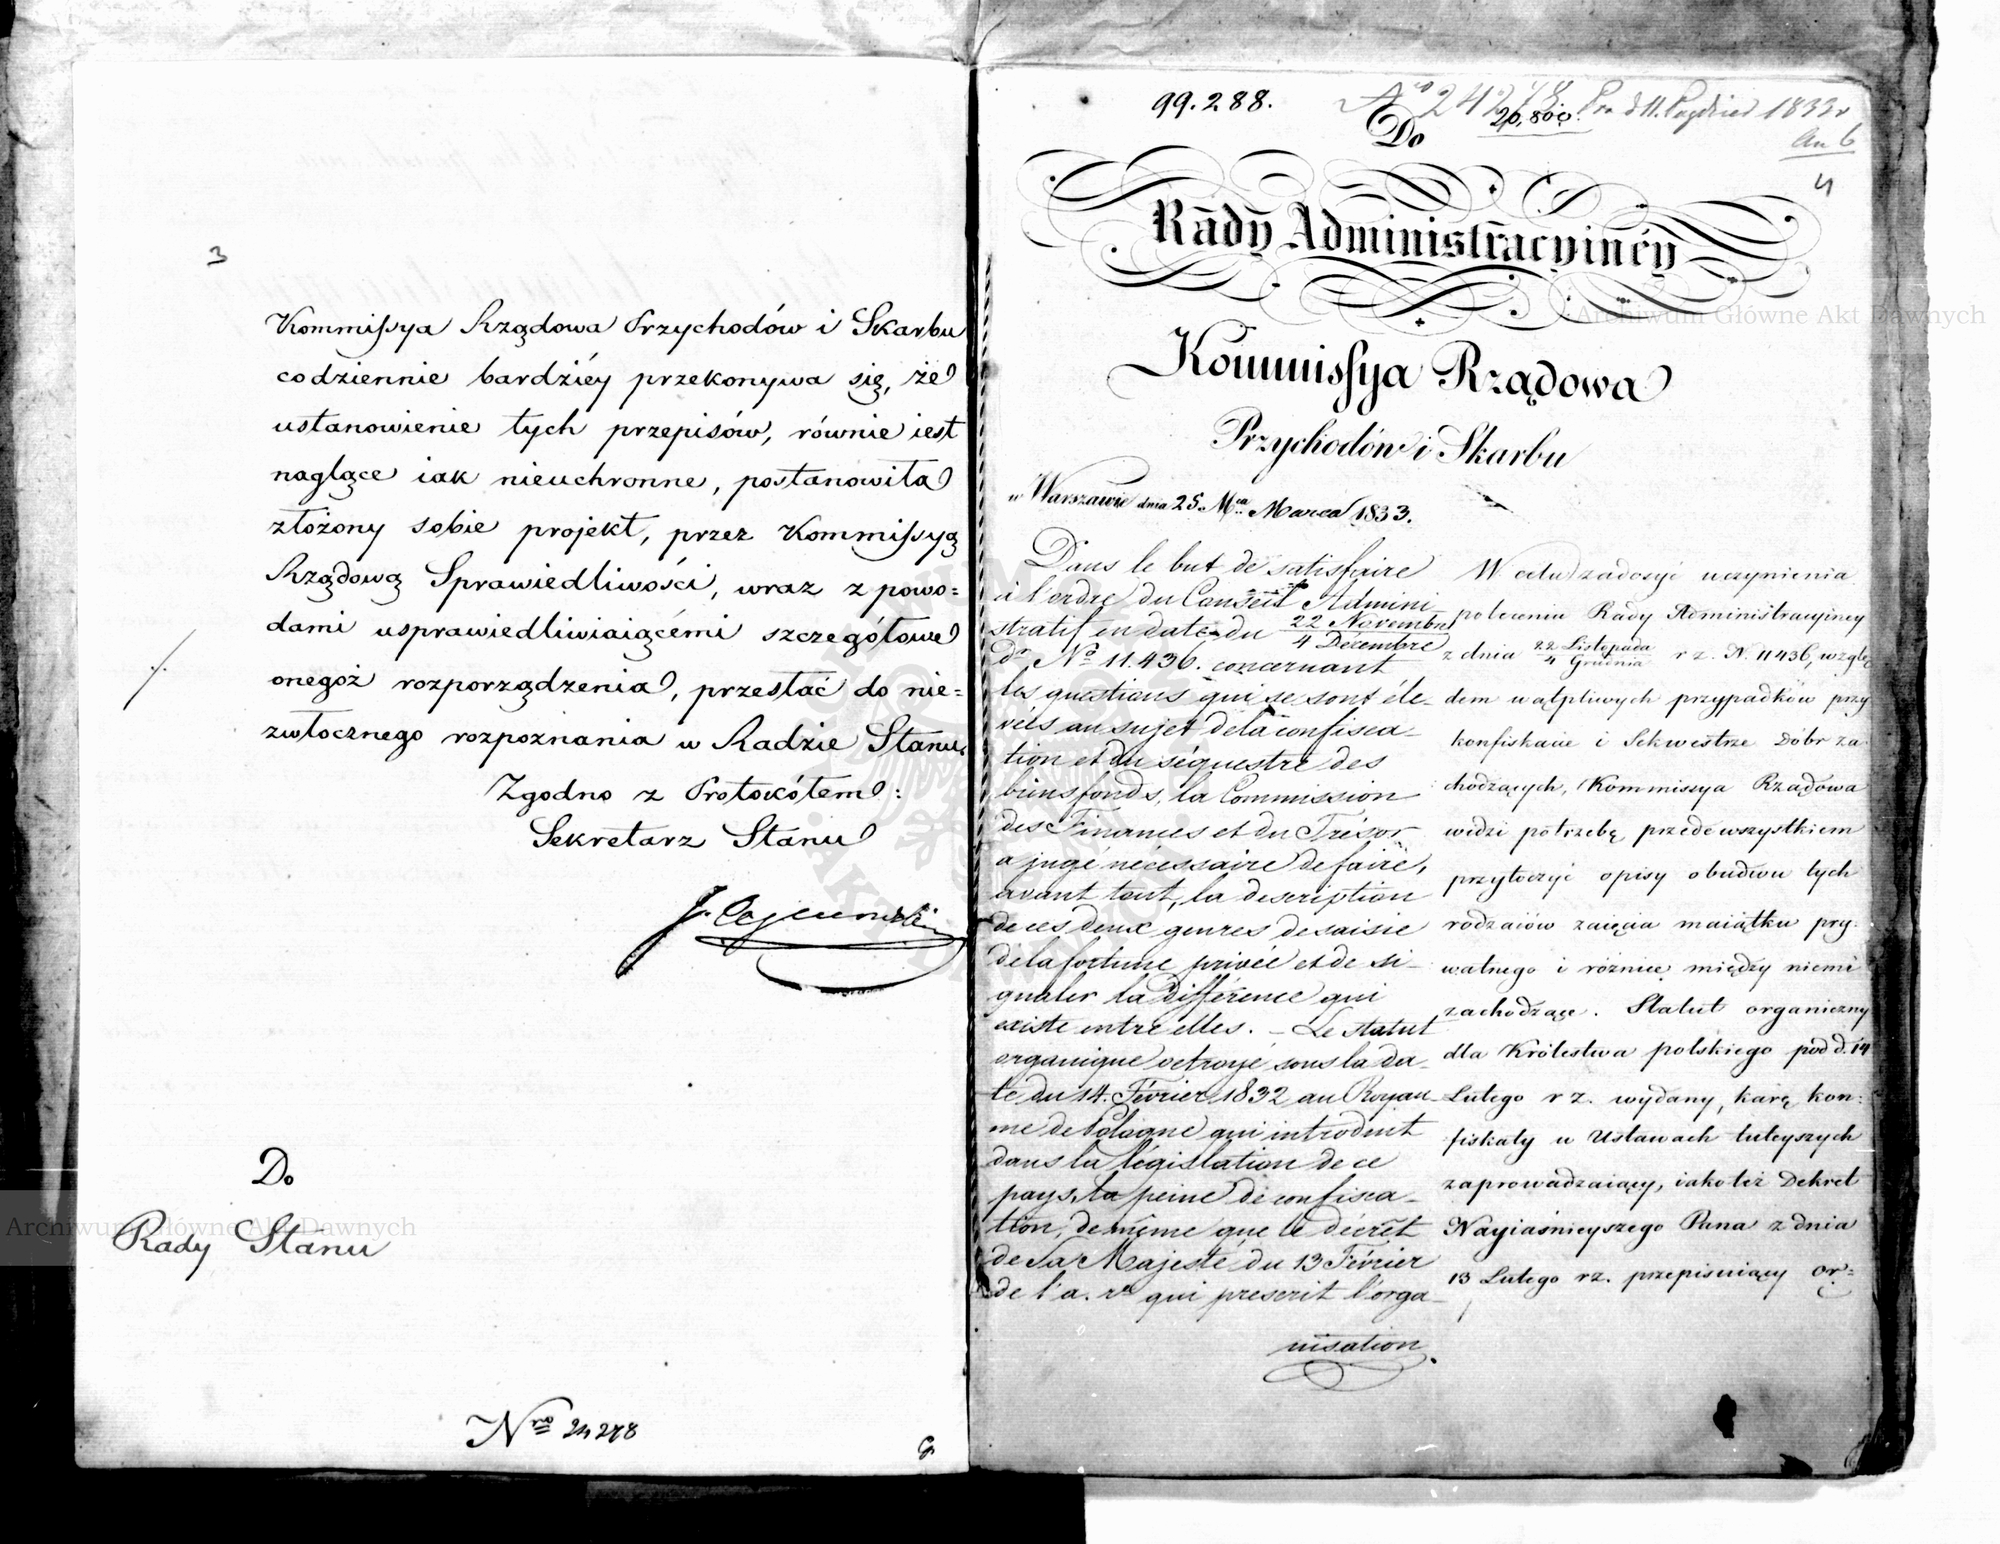 3
Kommissya Rządowa Przychodów i Skarbu
codziennie bardziéy przekonywa się, że
ustanowienie tych przepisów, równie iest
naglące iak nieuchronne, postanowiła
złożony sobie projekt, przez Kommissyą
Rządową Sprawiedliwości, wraz z powo=
dami usprawiedliwiaiącémi szczegółowe
onegoż rozporządzenia, przesłać do nie=
zwłocznego rozpoznania w Radzie Stanu.
Zgodno z Protokółem:
Sekretarz Stanu
Do
Rady Stanu
Nro 24278
99.288.
No 24278 Pr. d 11. Paździer 1833r
20,800.
An 6
4
Do
Rady Administracyinéy
Kommissya Rządowa
Przychodów i Skarbu
w Warszawie dnia 25. Mca Marca 1833.
Dans le but de satisfaire
à l'ordre du Conseil Admini-
stratif en date du 22 Novembre
4 Décembre
dr No 11.436. concernant
les questions qui se sont éle-
vées au sujet de la confisca-
tion et du séquestre des
biens fonds, la Commission
des Finances et du Trésor
a jugé nécessaire de faire,
avant tout, la description
de ces deux genres de saisie
de la fortune privée et de si-
gnaler la différence qui
existe entre elles. – Le statut
organique octroyé sous la da-
te du 14. Février 1832 au Royau-
me de Pologne qui introduit
dans la législation de ce
pays, la peine de confisca-
tion, de même que le décret
de Sa Majesté du 13 Février
de l'a. rt qui prescrit l'orga-
nisation
W celu zadosyć uczynienia
poleceniu Rady Administracyiney
z dnia 22 Listopada
4 Grudnia r z. N. 11436, wzglę
dem wątpliwych przypadków przy
konfiskacie i Sekwestrze Dóbr za-
chodzących, Kommissya Rządowa
widzi potrzebę przedewszystkiem
przytoczyć opisy obudwu tych
rodzaiów zaięcia maiątku pry-
watnego i różnice między niemi
zachodzące. Statut organiczny
dla Królestwa polskiego pod d. 14
Lutego r z. wydany, karę kon:
fiskaty w Ustawach tuteyszych
zaprowadzaiący, iako też Dekret
Nayiaśnieyszego Pana z dnia
13 Lutego rz. przepisuiący or=
Archiwum Główne Akt Dawnych
Archiwum Główne Akt Dawnych